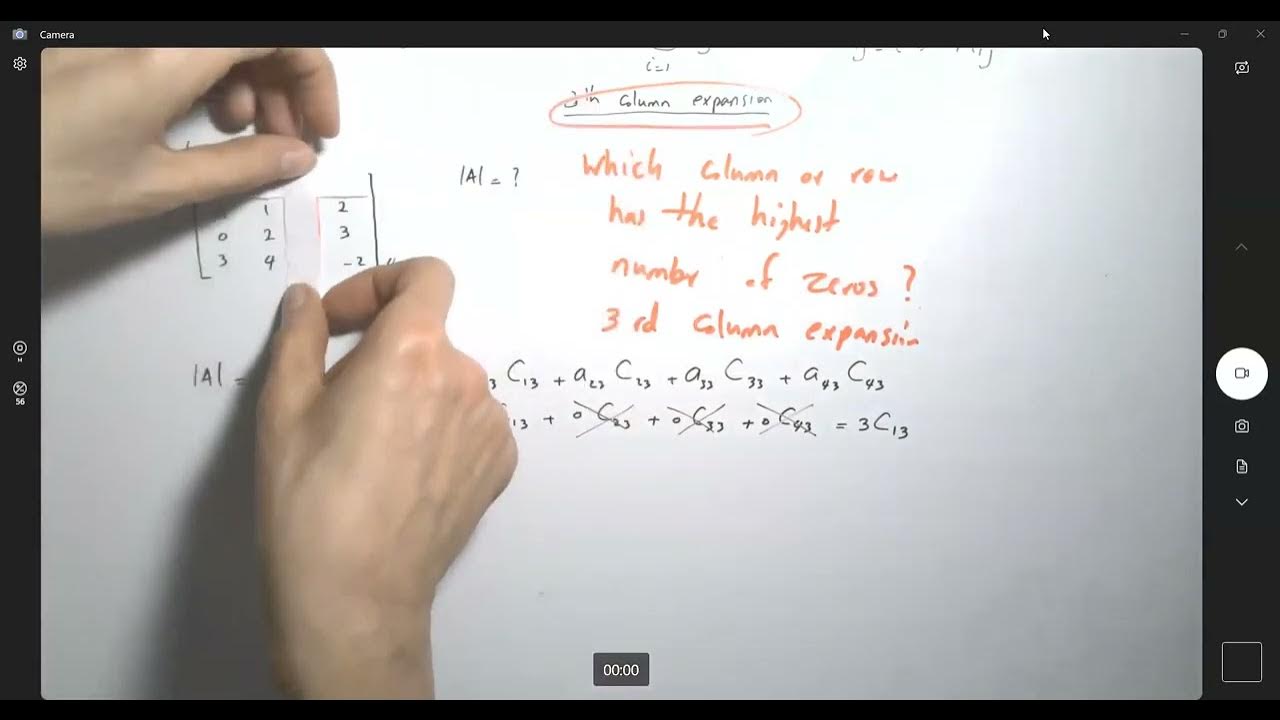 Camera
i=1
th column expansion
|A| = ?
Which column or row
has the highest
number of zeros ?
3 rd column expansion
1 2
0 2 3
3 4 -2
|A| =
3 C13 + a23 C23 + a33 C33 + a43 C43
13 + 0 C23 + 0 C33 + 0 C43 = 3C13
M
56
00:00